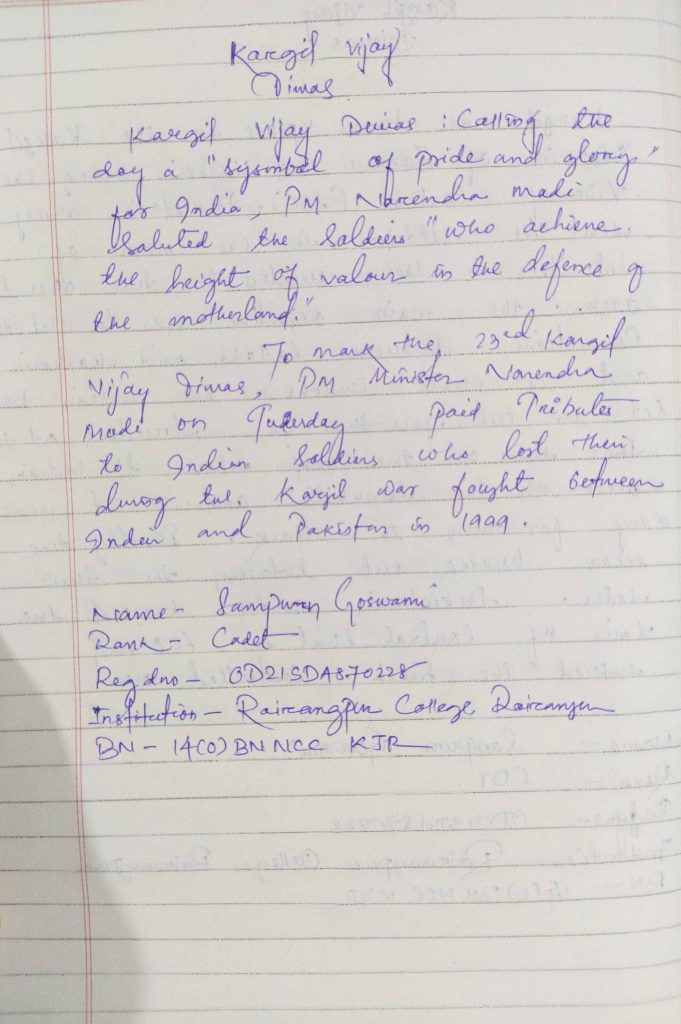 Kargil Vijay
Diwas
Kargil Vijay Diwas : Calling the
day a "sysmbol of pride and glory"
for India, PM Narendra modi
Saluted the Soldiers "who achieve
the height of valour in the defence of
the motherland."
To mark the 23rd Kargil
Vijay Diwas, PM Minister Narendra
Modi on Tuesday paid Tributes
to Indian Soldiers who lost their
during the Kargil war fought between
India and Pakistan in 1999.
Name - Sampuran Goswami
Rank - Cadet
Regdno - OD21SDA870228
Institution - Rairangpur College, Rairangpur
BN - 14(O) BN NCC KJR